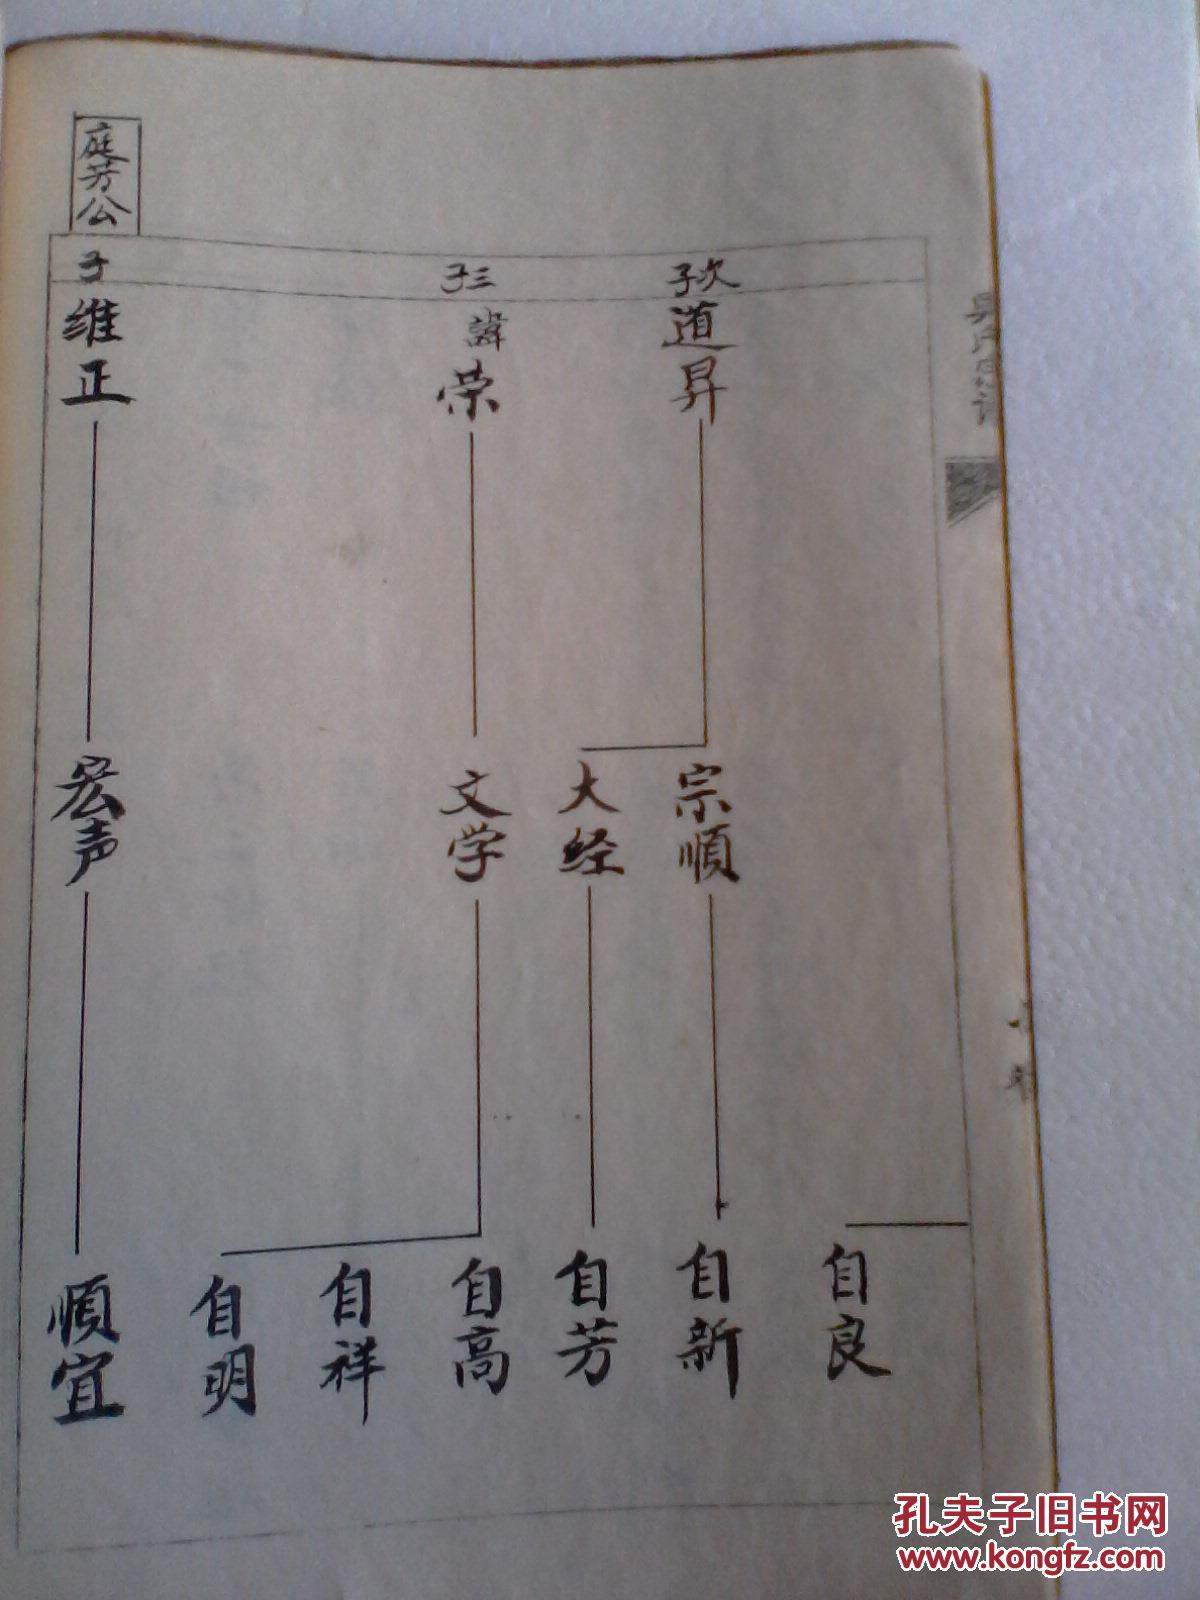 次子
道昇
宗順
大经
自良
自新
自芳
三子
諱
荣
文学
自高
自祥
自明
庭芳公
子
维正
宏声
順宜
孔夫子旧书网
www.kongfz.com